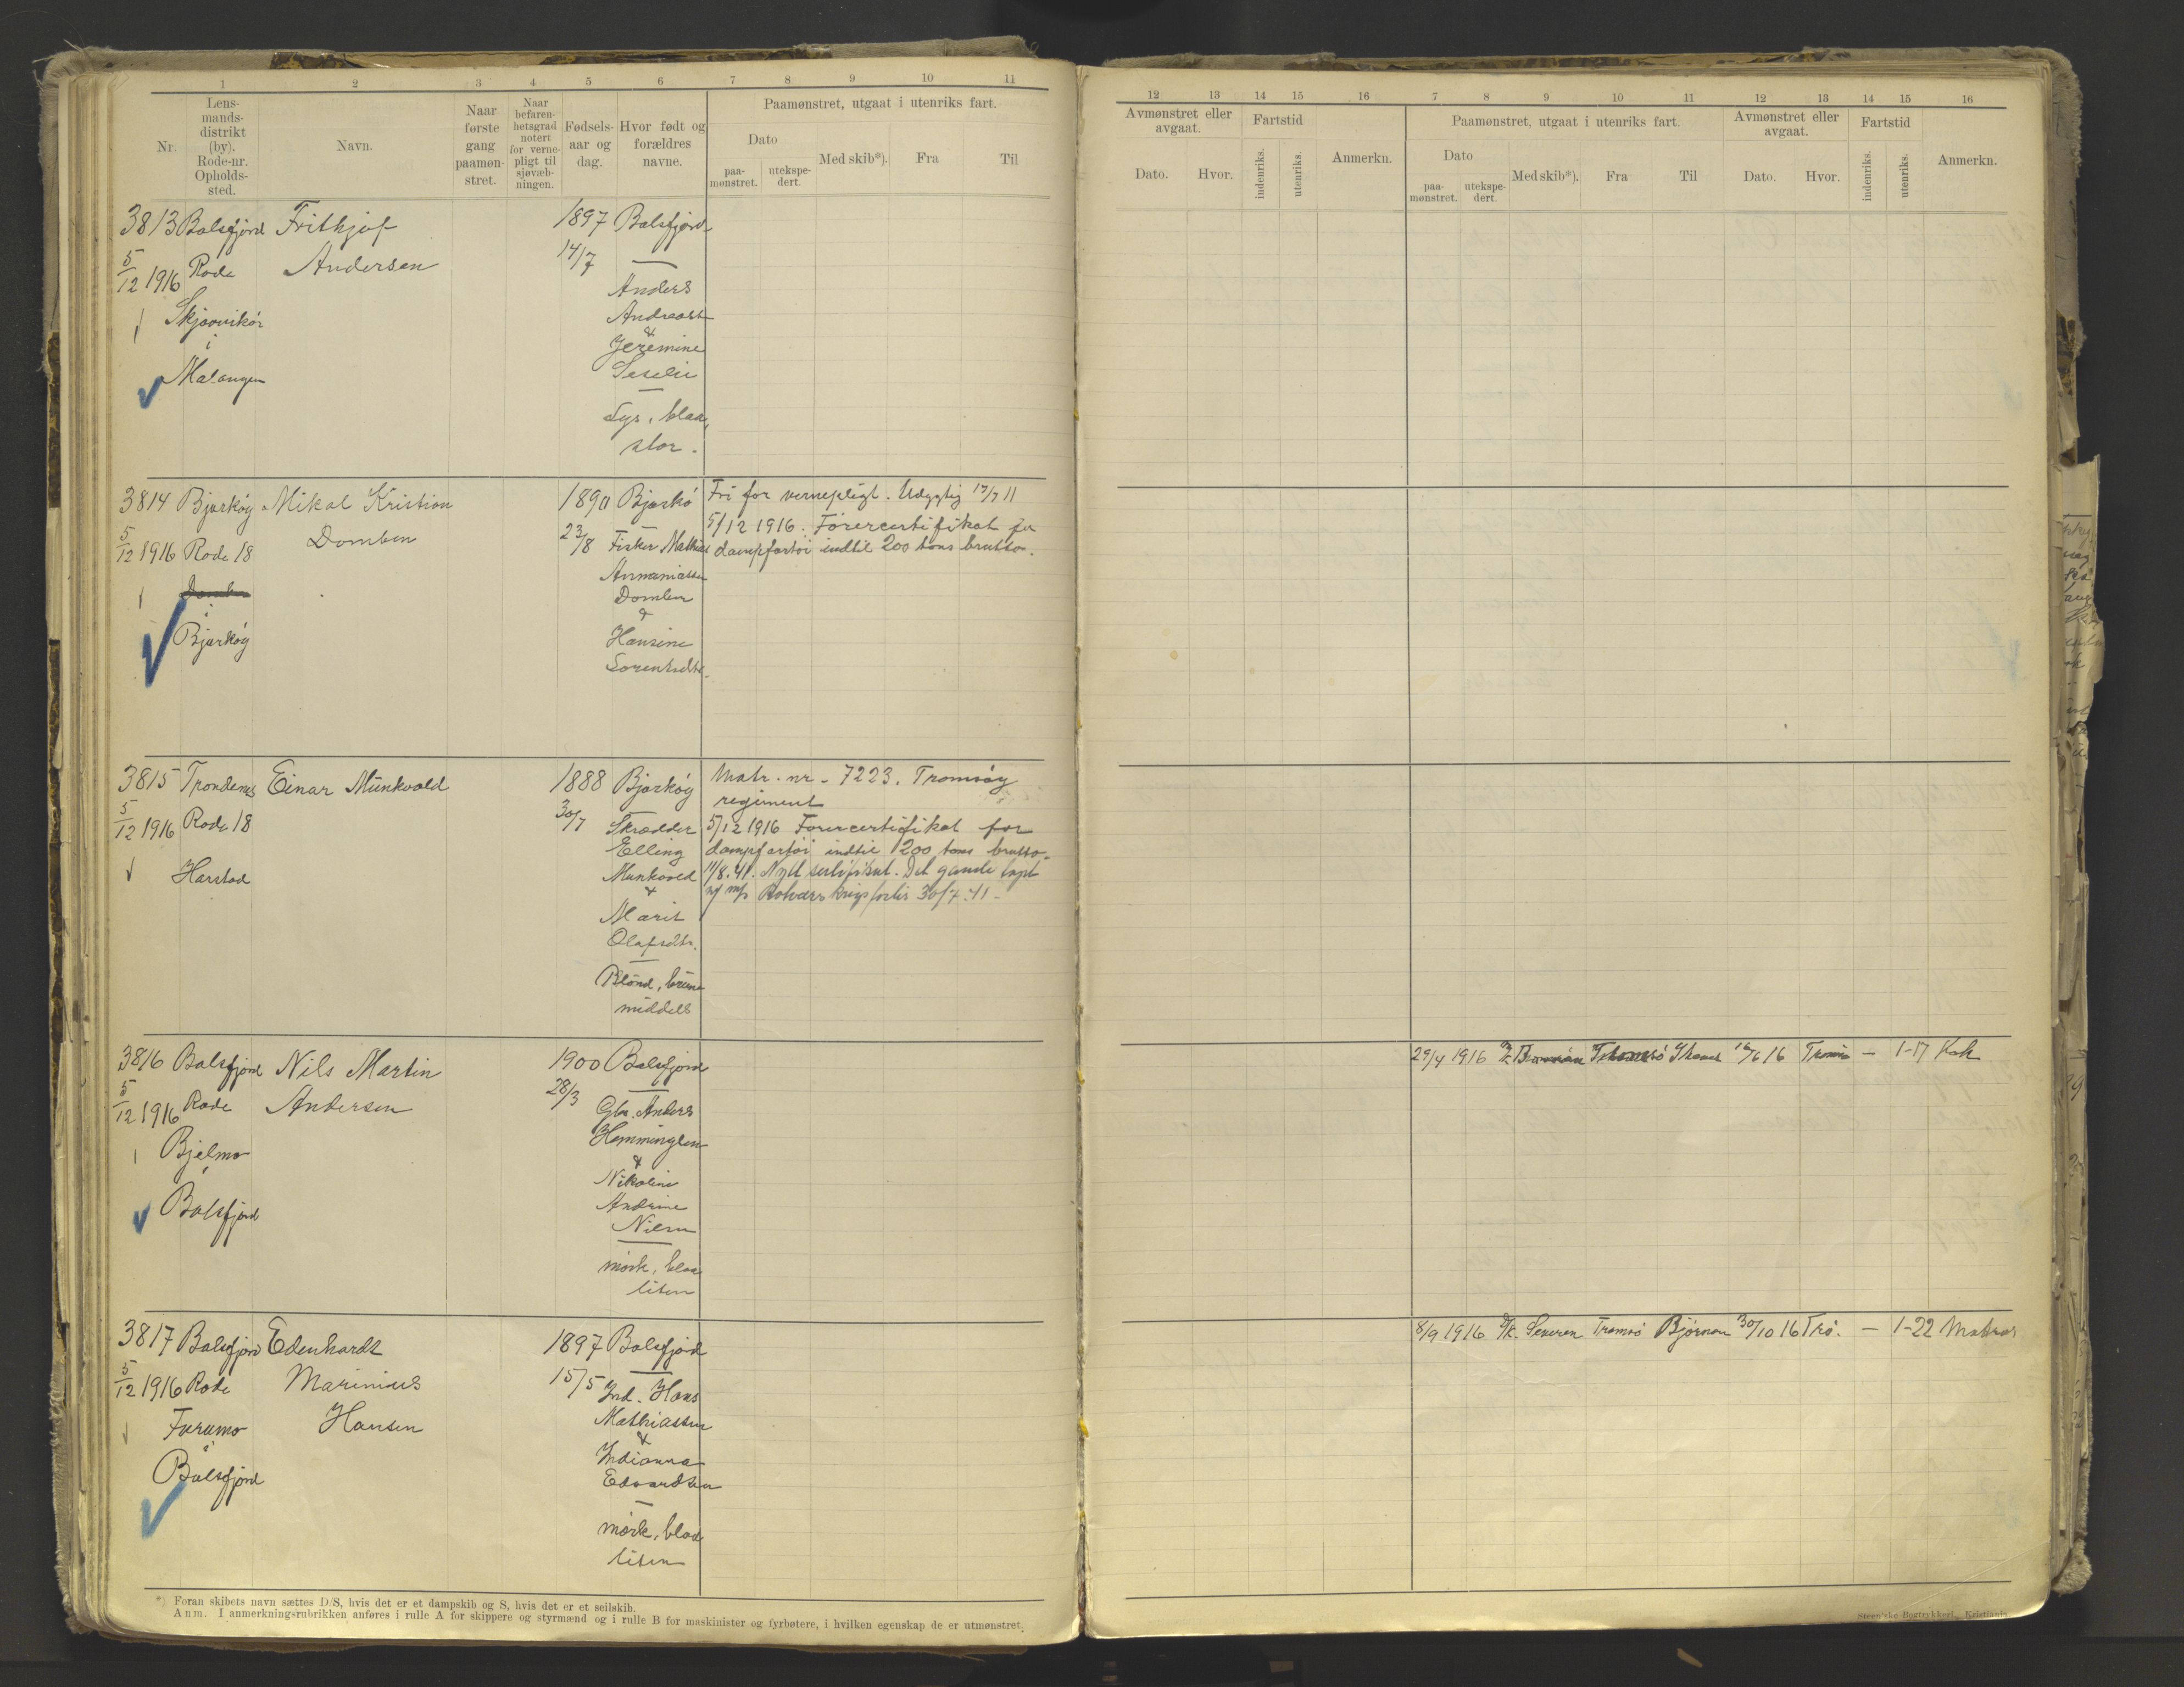 1 2 3 4 5 6 7 8 9 10 11
Nr.
Lens-
mands-
distrikt
(by).
Rode-nr.
Opholds-
sted.
Navn.
Naar
første
gang
paamøn-
stret.
Naar
befaren-
hetsgrad
notert
for verne-
pligt til
sjøvæb-
ningen.
Fødsels-
aar og
dag.
Hvor født og
forældres
navne.
Paamønstret, utgaat i utenriks fart.
Dato
paa-
mønstret.
utekspe-
dert.
Med skib*).
Fra
Til
3813 Balsfjord Frithjof 1897 Balsfjord
5/12 1916 Rode Andersen 14/7
Anders
Andreas
&
Jeremine
Seselie
i
Malangen
Lys, blaa,
stor.
3814 Bjarkøy Mikal Kristian 1890 Bjarkö Fri for vernepligt. Udygtig 17/7 11
5/12 1916 Rode 18 Domben 23/8 Fisker Mathias
5/12 1916. Förercertifikat for
dampfartöi indtil 200 tons brutto.
Annaniassen
Domben
&
Hansine
Lorentsdtr.
i
Bjarköy
3815 Trondenes Einar Munkvold 1888 Bjarköy Matr. nr. 7223. Tromsöy
regiment
5/12 1916 Rode 18 30/7 Skrædder 5/12 1916 Förercertifikat for
Elling dampfartöi indtil 200 tons brutto.
Harstad Munkvold 11/8.41. Nytt sertifikat. Det gamle tapt
& v/ m/s krigsforlis 30/7.41-
Marit
Olafsdtr.
Blond, brune
middels
3816 Balsfjord Nils Martin 1900 Balsfjord
5/12 1916 Rode Andersen 28/3
Gbr. Anders
Hemmingsen
&
Nikoline
Andrine
Nilsen
Bjelmo
i
Balsfjord
mörk, blaa
liten
3817 Balsfjord Edenhardt 1897 Balsfjord
5/12 1916 Rode Marinius 15/5
Ind. Hans
Furumo Hansen Mathiassen
i &
Indianna
Balsfjord Edvardsen
mörk, blaa
liten
*) Foran skibets navn sættes D/S, hvis det er et dampskib og S, hvis det er et seilskib.
Anm. I anmerkningsrubrikken anføres i rulle A for skippere og styrmænd og i rulle B for maskinister og fyrbøtere, i hvilken egenskap de er utmønstret.
12 13 14 15 16 7 8 9 10 11 12 13 14 15 16
Avmønstret eller
avgaat.
Dato.
Hvor.
Fartstid
indenriks.
utenriks.
Anmerkn.
Paamønstret, utgaat i utenriks fart.
Dato
paa-
mønstret.
utekspe-
dert.
Med skib*).
Fra
Til
Avmønstret eller
avgaat.
Dato.
Hvor.
Fartstid
indenriks.
utenriks.
Anmerkn.
29/4 1916 Tromsö 16/6 16 Tromsö — 1-17 Kok
8/9 1916 Severen Tromsö Björnøn 30/10 16 Trö. — 1-22 Matros
Steen'ske Bogtrykkeri, Kristiania